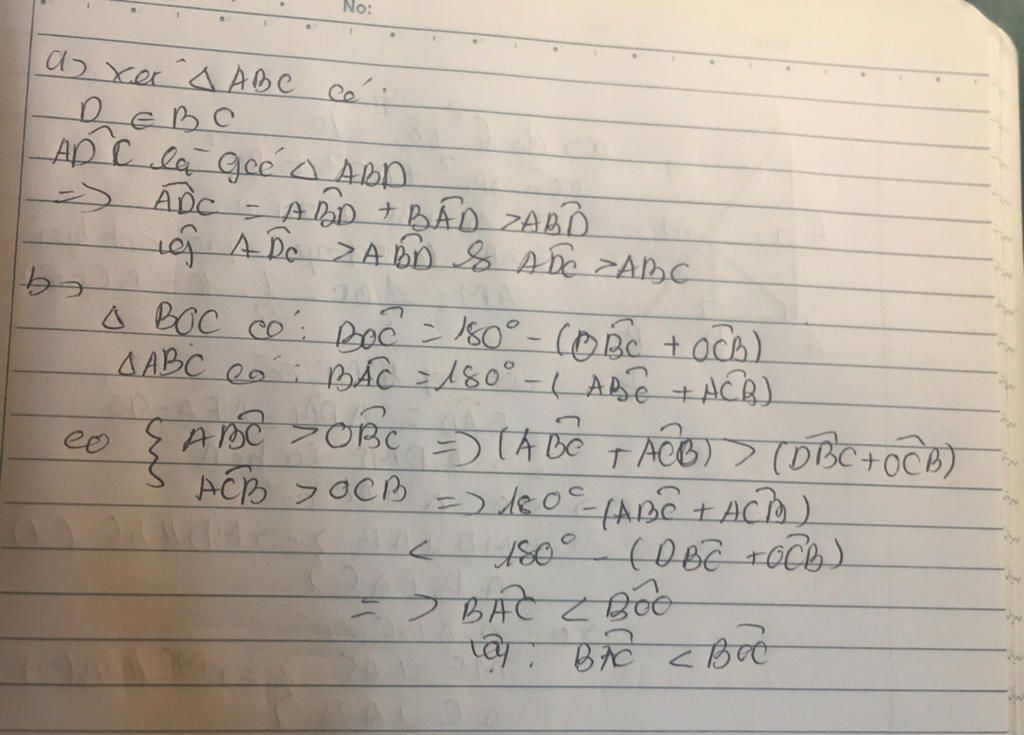 No:
a) xét △ ABC có:
D ∈ BC
ADC là góc △ ABD
=> ADC = ABD + BAD > ABD
Vậy ADC > ABD & ADC > ABC
b)
△ BOC có: BOC = 180° - (OBC + OCB)
△ABC có: BAC = 180° - (ABC + ACB)
có { ABC > OBC => (ABC + ACB) > (OBC + OCB)
ACB > OCB => 180° - (ABC + ACB)
< 180° - (OBC + OCB)
=> BAC < BOC
Vậy: BAC < BOC